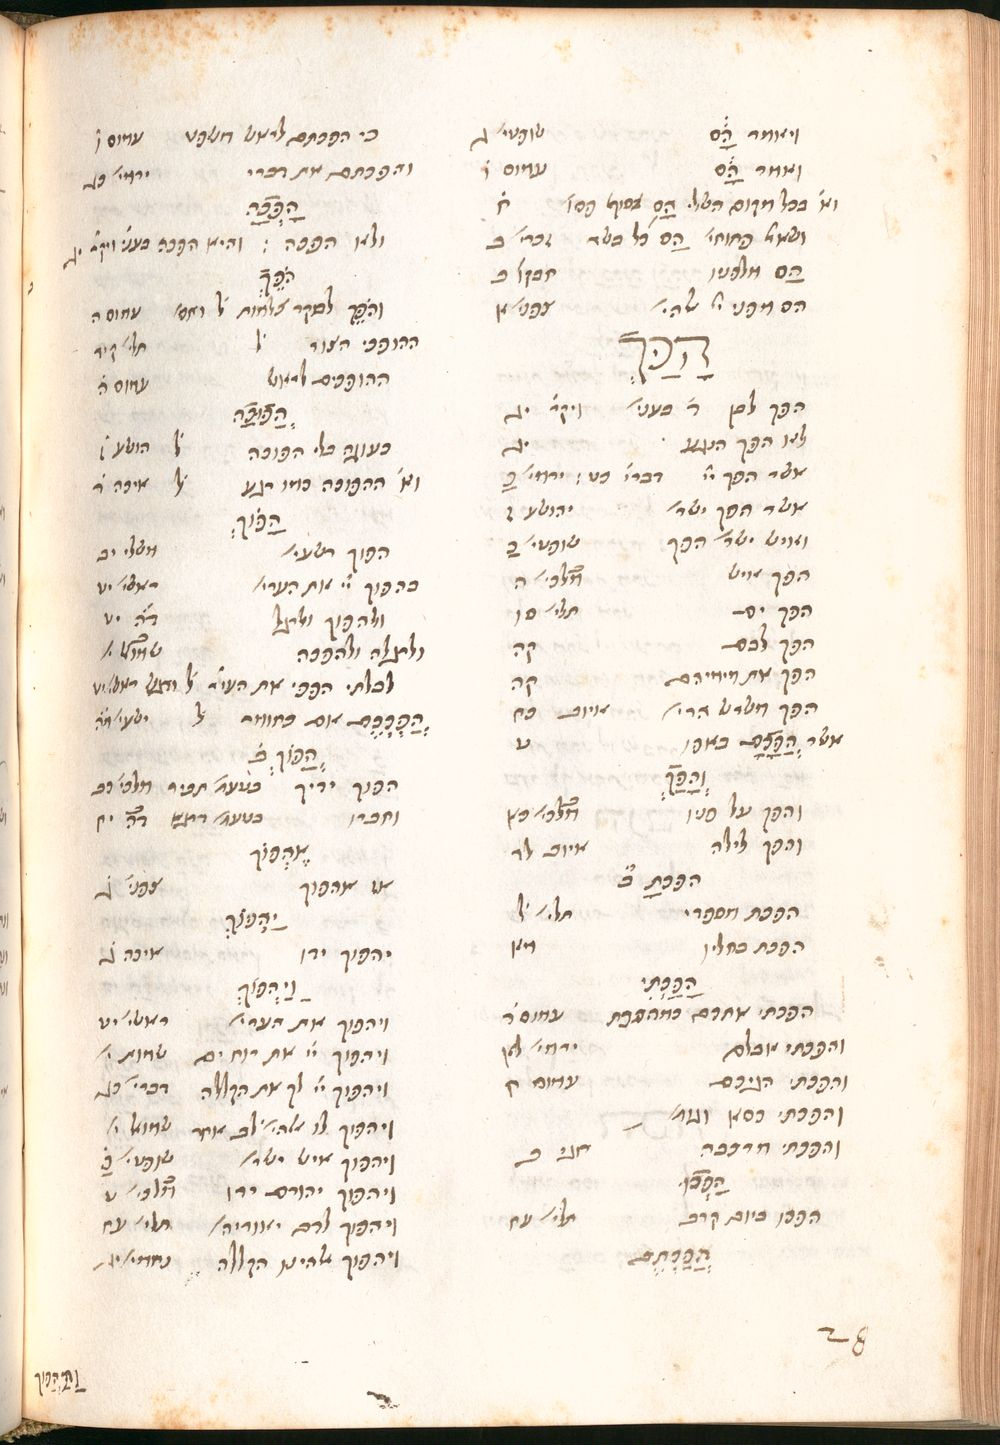 ויאמר הס שופטי' ג
ואמר הס עמוס ו
וא' בכל מקום השלי הס פסוק ח
הס כל בשר זכרי' ב
הס מלפניו חבקו' ב
הס מפני יי' אלהי' צפני' א
הָפַךְ
הפך לבן ויקר' יג
לא הפך הנגע יג
אשר הפך יי' דברי' כט ירמי' כ
אשר הפך ישר' יהושע ז
ואיש ישר' הפך שופטי' כ
הפך איש מלכי' ה
הפך ים תלי' סו
הפך לבם קה
הפך את מימיהם קה
הפך משרש הרי' איוב כח
אשר הֲפָכָם באפו ט
וְהָפַךְ
והפך על פניו מלכי' כא
והפך לילה איוב לד
הפכת ב'
הפכת מספדי תלי' ל
הפכת בחליו מא
הָפַכְתִּי
הפכתי אתכם כמהפכת עמוס ד
והפכתי אבלם ירמי' לא
והפכתי חגיכם עמוס ח
והפכתי כסא
והפכתי מרכבה חגי ב
הָפְכוּ
הפכו ביום קרב תלי' עח
הֲפַכְתֶּם
כי הפכתם לראש משפט עמוס ו
והפכתם את דברי ירמי' כג
הָפְכָה
ולא הפכה והיא הפכה שער ויקר' יג
הֹפֵךְ
והֹפֵךְ לבקר צלמות עמוס ה
ההופכי הצור ל' תלי' קיד
ההופכים לראש עמוס ה
הֲפוּכָה
כעוגה בלי הפוכה ל' הושע ז
וא' ההפוכה כמו רגע ל' איכה ד
הָפוֹךְ
הפוך רשעי' משלי יב
בהפוך יי' את הערי' ראשי' יט
ולהפוך ולרגל ד"ה יט
ולרגלה ולהפכה שמואל י
לבלתי הפכי את העיר ל' ראשי' יט
הַפְכְּכֶם אם כחומר ל' ישעי' כט
הֲפוֹךְ ב'
הפוך ידיך בטעם תביר מלכי' כב
וחברו בטעם ד"ה יח
אֶהְפּוֹךְ
אז אהפוך צפני' ג
יַהֲפוֹךְ
יהפוך ידו איכה ג
וַיַּהֲפוֹךְ
ויהפוך את הערי' ראשי' יט
ויהפוך יי' את רוח ים שמות י
ויהפוך יי' לך את הקללה דברי' כג
ויהפוך לו אלהי' לב אחר שמואל י
ויהפוך איש ישר' שופטי' כ
ויהפוך יהורם ידו מלכי' ט
ויהפוך לדם יאוריהם תלי' עח
ויהפוך אלהינו הקללה נחמי' יג
28